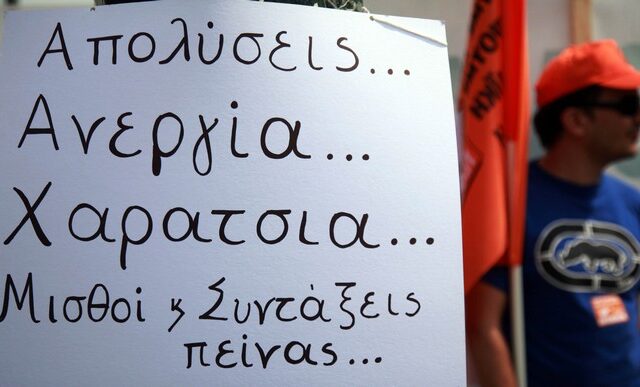 Απολύσεις...
Ανεργία...
Χαρατσια...
Μισθοί κ Συντάξεις
πείνας...